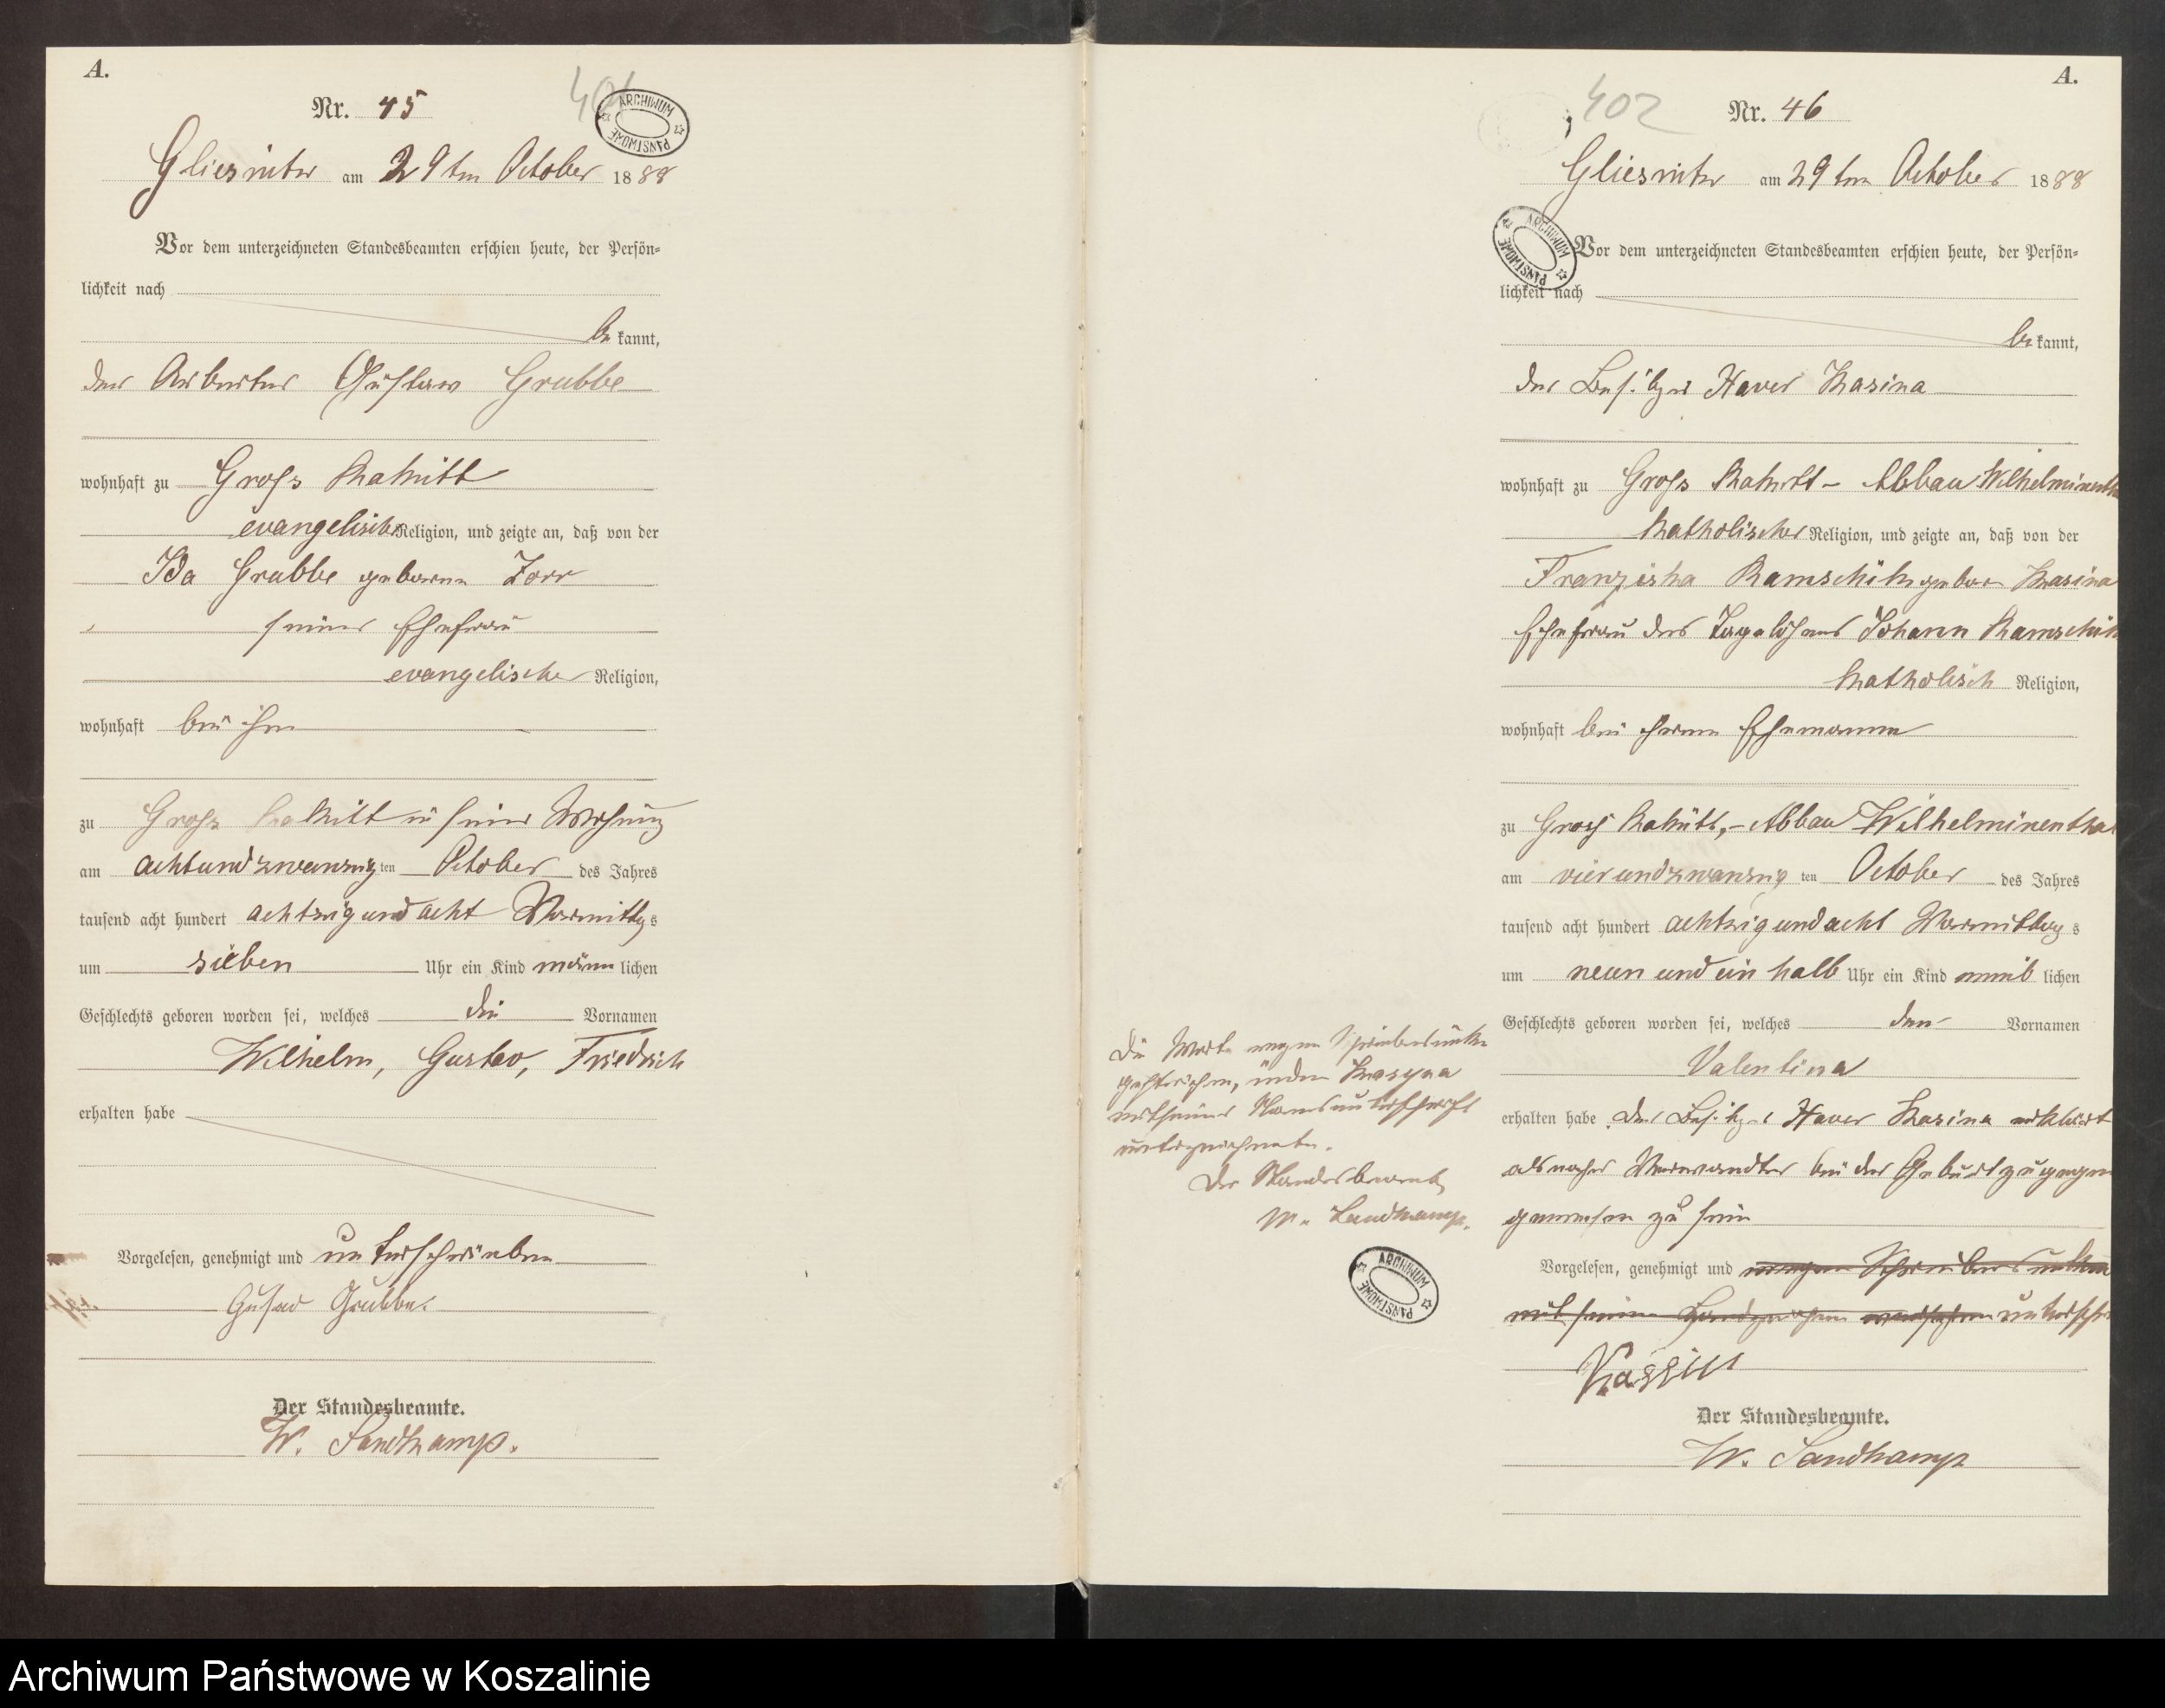 A.
Nr. 45
401
ARCHIWUM PAŃSTWOWE
Gliesnitz am 29ten October 1888
Vor dem unterzeichneten Standesbeamten erschien heute, der Persön=
lichkeit nach
be kannt,
der Arbeiter Gustav Grubbe
wohnhaft zu Gross Rakitt
evangelischer Religion, und zeigte an, daß von der
Ida Grubbe geborene Zorr
seiner Ehefrau
evangelischer Religion,
wohnhaft bei ihm
zu Gross Rakitt in seiner Wohnung
am achtundzwanzig ten October des Jahres
tausend acht hundert achtzig und acht Vormittags
um sieben Uhr ein Kind männ lichen
Geschlechts geboren worden sei, welches die Vornamen
Wilhelm, Gustav, Friedrich
erhalten habe
Vorgelesen, genehmigt und unterschrieben
Gustav Grubbe.
Der Standesbeamte.
W. Sandkamp.
A.
402
Nr. 46
Gliesnitz am 29ten October 1888
ARCHIWUM PAŃSTWOWE
Vor dem unterzeichneten Standesbeamten erschien heute, der Persön=
lichkeit nach
be kannt,
der Besitzer Xaver Kasina
wohnhaft zu Gross Rakitt - Abbau Wilhelminenth
katholischer Religion, und zeigte an, daß von der
Franziska geboren Kasina
Ehefrau des Tagelöhners Johann
katholisch Religion,
wohnhaft bei ihrem Ehemanne
zu Gross Rakitt, - Abbau Wilhelminenthal
am vierundzwanzig ten October des Jahres
tausend acht hundert achtzig und acht Vormittag s
um neun und ein halb Uhr ein Kind weib lichen
Geschlechts geboren worden sei, welches den Vornamen
Valentina
erhalten habe. Der Besitzer Xaver Kasina erklärt
als naher Verwandter bei der Geburt zugegen
gewesen zu sein
Vorgelesen, genehmigt und wegen Schreibensunkun
mit seinem Handzeichen versehen unterschr
Der Standesbeamte.
W. Sandkamp
Die Worte wegen Schreibensunkun
gestrichen, indem
mit seiner Namensunterschrift
unterzeichnete.
Der Standesbeamte
W. Sandkamp.
ARCHIWUM PAŃSTWOWE
Archiwum Państwowe w Koszalinie